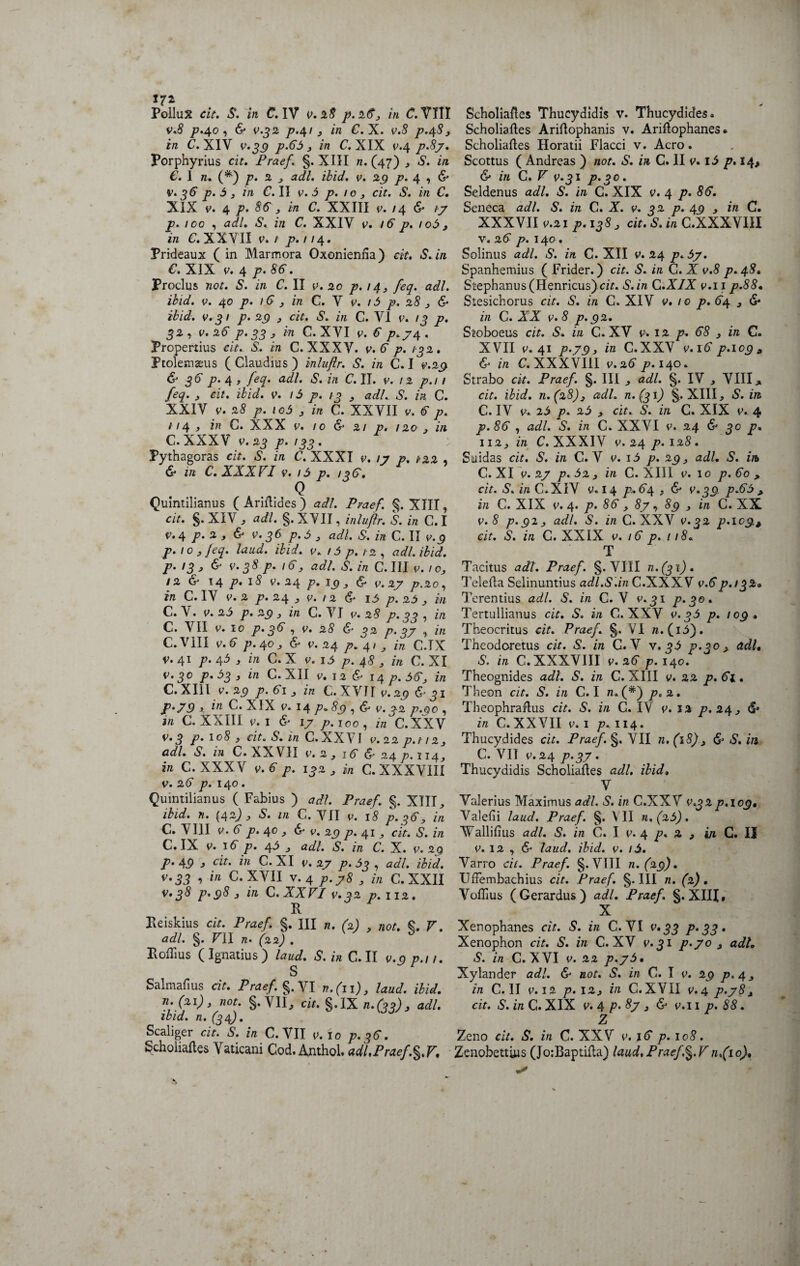 172
Pollux cit. S. in C. IV v. 28 p. 26, in C. VIII
v.8 p.40, & v.32 p.41, in C. X. v.8 p.48,
in C. XIV v.39 p.65, in C. XIX v.4 p.87.
Porphyrius cit. Praef. §. XIII n. (47), S. in
C. I n. (*) p. 2, adl. ibid. v. 29 p. 4, &
v. 36 p. 5, in C. II v. 5 p. 10, cit. S. in C.
XIX v. 4 p. 86, in C. XXIII v. 14 & 17
p. 100, adl. S. in C. XXIV v. 16 p. 105,
in C. XXVII v. 1 p. 114.
Prideaux ( in Marmora Oxoniensia) cit. S. in
C. XIX v. 4 p. 86.
Proclus not. S. in C. II v. 20 p. 14, seq. adl.
ibid. v. 40 p. 16, in C. V v. 15 p. 28, &
ibid. v. 31 p. 29, cit. S. in C. VI v. 13 p.
32, v. 26 p. 33, in C. XVI v. 6 p. 74.
Propertius cit. S. in C. XXXV. v. 6 p. 132.
Ptolemæus ( Claudius ) inlustr. S. in C. I v.29
& 36 p. 4, seq. adl. S. in C. II. v. 12 p. 11
seq., cit. ibid. v. 15 p. 13, adl. S. in C.
XXIV v. 28 p. 105, in C. XXVII v. 6 p.
114, in C. XXX v. 10 & 21 p. 120, in
C. XXXV v. 23 p. 133.
Pythagoras cit. S. in C. XXXI v. 17 p. 122,
& in C. XXXVI v. 15 p. 136.
Q
Quintilianus ( Aristides ) adl. Praef. §. XIII,
cit. §. XIV, adl. §. XVII, inlustr. S. in C. I
v. 4 p. 2, & v. 36 p. 5, adl. S. in C. II v. 9
p. 10, seq. laud. ibid. v. 15 p. 12, adl. ibid.
p. 13, & v. 38 p. 16, adl. S. in C. III v. 10,
12 & 14 p. 18 v. 24 p. 19, & v. 27 p.20,
in C. IV v. 2 p. 24, v. 12 & 15 p. 25, in
C. V. v. 25 p. 29, in C. VI v. 28 p. 33, in
C. VII v. 10 p.36, v. 28 & 32 p. 37, in
C. VIII v. 6 p. 40, & v. 24 p. 41, in C. IX
v. 41 p. 45, in C. X v. 15 p. 48, in C. XI
v. 30 p. 53, in C. XII v. 12 & 14 p. 56, in
C. XIII v. 29 p. 61, in C. XVII v.29 & 31
p. 79, in C. XIX v. 14 p. 89, & v. 32 p.90,
in C. XXIII v. 1 & 17 p. 100, in C. XXV
v. 3 p. 108, cit. S. in C. XXVI v. 22 p. 112,
adl. S. in C. XXVII v. 2, 16 & 24 p. 114,
in C. XXXV v. 6 p. 132, in C. XXXVIII
v. 26 p. 140.
Quintilianus ( Fabius ) adl. Praef. §. XIII,
ibid. n. (42), S. in C. VII v. 18 p. 36, in
C. VIII v. 6 p. 40, & v. 29 p. 41, cit. S. in
C. IX v. 16 p. 45, adl. S. in C. X. v. 29
p. 49, cit. in C. XI v. 27 p. 53, adl. ibid.
v. 33, in C. XVII v. 4 p. 78, in C. XXII
v. 38 p. 98, in C. XXVI v. 32 p. 112.
R
Reiskius cit. Praef. §. III n. (2), not. §. V.
adl. §. VII n. (22).
Rossius ( Ignatius ) laud. S. in C. II v.9 p. 11.
S
Salmasius cit. Praef. §. VI n. (11), laud. ibid.
n. (21), not. §. VII, cit. §. IX n. (33), adl.
ibid. n. (34).
Scaliger cit. S. in C. VII v. 10 p. 36.
Scholiastes Vaticani Cod. Anthol. adl. Praef. §. V.
Scholiastes Thucydidis v. Thucydides.
Scholiastes Aristophanis v. Aristophanes.
Scholiastes Horatii Flacci v. Acro.
Scottus ( Andreas ) not. S. in C. II v. 15 p. 14,
& in C. V v.31 p.30.
Seldenus adl. S. in C. XIX v. 4 p. 86.
Seneca adl. S. in C. X. v. 32 p. 49, in C.
XXXVII v.21 p. 138, cit. S. in C. XXXVIII
v. 26 p. 140.
Solinus adl. S. in C. XII v. 24 p. 57.
Spanhemius ( Frider. ) cit. S. in C. X v.8 p. 48.
Stephanus (Henricus) cit. S. in C. XIX v.11 p.88.
Stesichorus cit. S. in C. XIV v. 10 p. 64, &
in C. XX v. 8 p. 92.
Stoboeus cit. S. in C. XV v. 12 p. 68, in C.
XVII v. 41 p.79, in C.XXV v.16 p.109,
& in C. XXXVIII v. 26 p. 140.
Strabo cit. Praef. §. III, adl. §. IV, VIII,
cit. ibid. n. (28), adl. n. (31) §. XIII, S. in
C. IV v. 25 p. 25, cit. S. in C. XIX v. 4
p. 86, adl. S. in C. XXVI v. 24 & 30 p.
112, in C. XXXIV v. 24 p. 128.
Suidas cit. S. in C. V v. 15 p. 29, adl. S. in
C. XI v. 27 p. 52, in C. XIII v. 10 p. 60,
cit. S. in C. XIV v. 14 p. 64, & v. 39 p.65,
in C. XIX v. 4. p. 86, 87, 89, in C. XX
v. 8 p. 92, adl. S. in C. XXV v.32 p.109,
cit. S. in C. XXIX v. 16 p. 118.
T
Tacitus adl. Praef. §. VIII n. (31).
Telesta Selinuntius adl. S. in C.XXXV v.6 p.132.
Terentius adl. S. in C. V v.31 p.30.
Tertullianus cit. S. in C. XXV v.35 p. 109.
Theocritus cit. Praef. §. VI n. (15).
Theodoretus cit. S. in C. V v. 35 p.30, adl.
S. in C. XXXVIII v. 26 p. 140.
Theognides adl. S. in C. XIII v. 22 p. 61.
Theon cit. S. in C. I n. (*) p. 2.
Theophrastus cit. S. in C. IV v. 12 p. 24, &
in C. XXVII v. 1 p. 114.
Thucydides cit. Praef. §. VII n. (18), & S. in
C. VII v. 24 p.37.
Thucydidis Scholiastes adl. ibid.
V
Valerius Maximus adl. S. in C.XXV v.32 p.109.
Valesii laud. Praef. §. VII n. (25).
Wallisius adl. S. in C. I v. 4 p. 2, in C. II
v. 12, & laud. ibid. v. 15.
Varro cit. Praef. §. VIII n. (29).
Uffembachius cit. Praef. §. III n. (2).
Vossius ( Gerardus ) adl. Praef. §. XIII,
X
Xenophanes cit. S. in C. VI v.33 p.33.
Xenophon cit. S. in C. XV v.31 p.70, adl.
S. in C. XVI v. 22 p.75.
Xylander adl. & not. S. in C. I v. 29 p. 4,
in C. II v. 12 p. 12, in C. XVII v.4 p.78,
cit. S. in C. XIX v. 4 p. 87, & v.11 p. 88.
Z
Zeno cit. S. in C. XXV v. 16 p. 108.
Zenobettius (Jo:Baptista) laud. Praef. §. V n. (10).